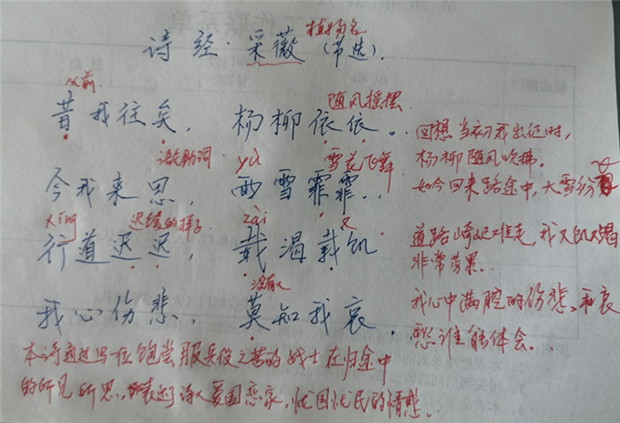 植物名
诗经·采薇(节选).
从前 随风摇摆
昔我往矣,杨柳依依.. 回想当初我出征时,
杨柳随风吹拂.
语助词 yù 雪花飞舞
今我来思,雨雪霏霏.. 如今回来路途中,大雪纷飞
行 迟缓的样子 zài 又
行道迟迟,载渴载饥 道路崎岖难走,我又饥又渴
非常劳累..
没有人
我心伤悲,莫知我哀. 我心中满腔的伤悲、和哀
愁谁能体会..
本诗通过写一位饱尝服兵役之苦的战士在归途中
的所见所思,表达了诗人爱国恋家,忧国忧民的情悲.